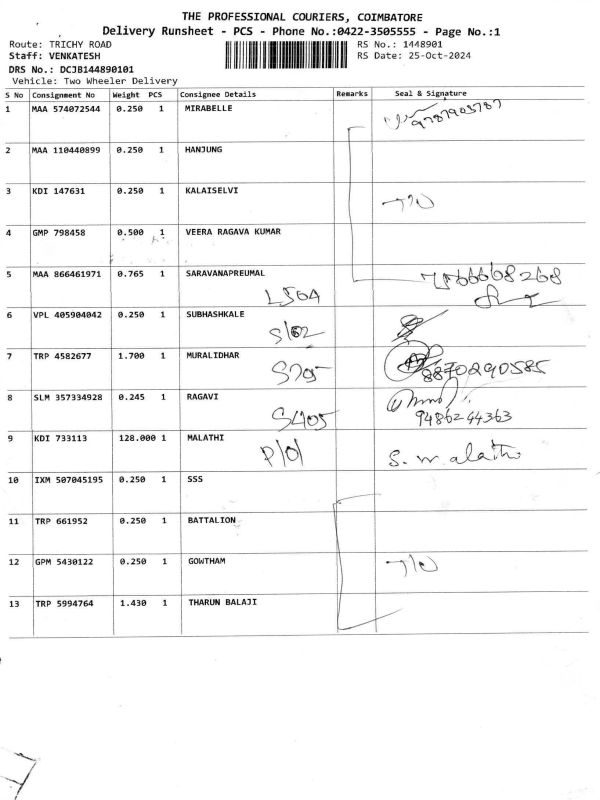 THE PROFESSIONAL COURIERS, COIMBATORE
Delivery Runsheet - PCS - Phone No.:0422-3505555 - Page No.:1
Route: TRICHY ROAD RS No.: 1448901
Staff: VENKATESH RS Date: 25-Oct-2024
DRS No.: DCJB144890101
Vehicle: Two Wheeler Delivery
S No Consignment No Weight PCS Consignee Details Remarks Seal & Signature
1 MAA 574072544 0.250 1 MIRABELLE
9787903787
2 MAA 110440899 0.250 1 HANJUNG
3 KDI 147631 0.250 1 KALAISELVI
4 GMP 798458 0.500 1 VEERA RAGAVA KUMAR
5 MAA 866461971 0.765 1 SARAVANAPREUMAL
L504
6 VPL 405904042 0.250 1 SUBHASHKALE
S102
7 TRP 4582677 1.700 1 MURALIDHAR
8870290585
8 SLM 357334928 0.245 1 RAGAVI
S405 9486244363
9 KDI 733113 128.000 1 MALATHI
P101 S. Malathi
10 IXM 507045195 0.250 1 SSS
11 TRP 661952 0.250 1 BATTALION
12 GPM 5430122 0.250 1 GOWTHAM
13 TRP 5994764 1.430 1 THARUN BALAJI